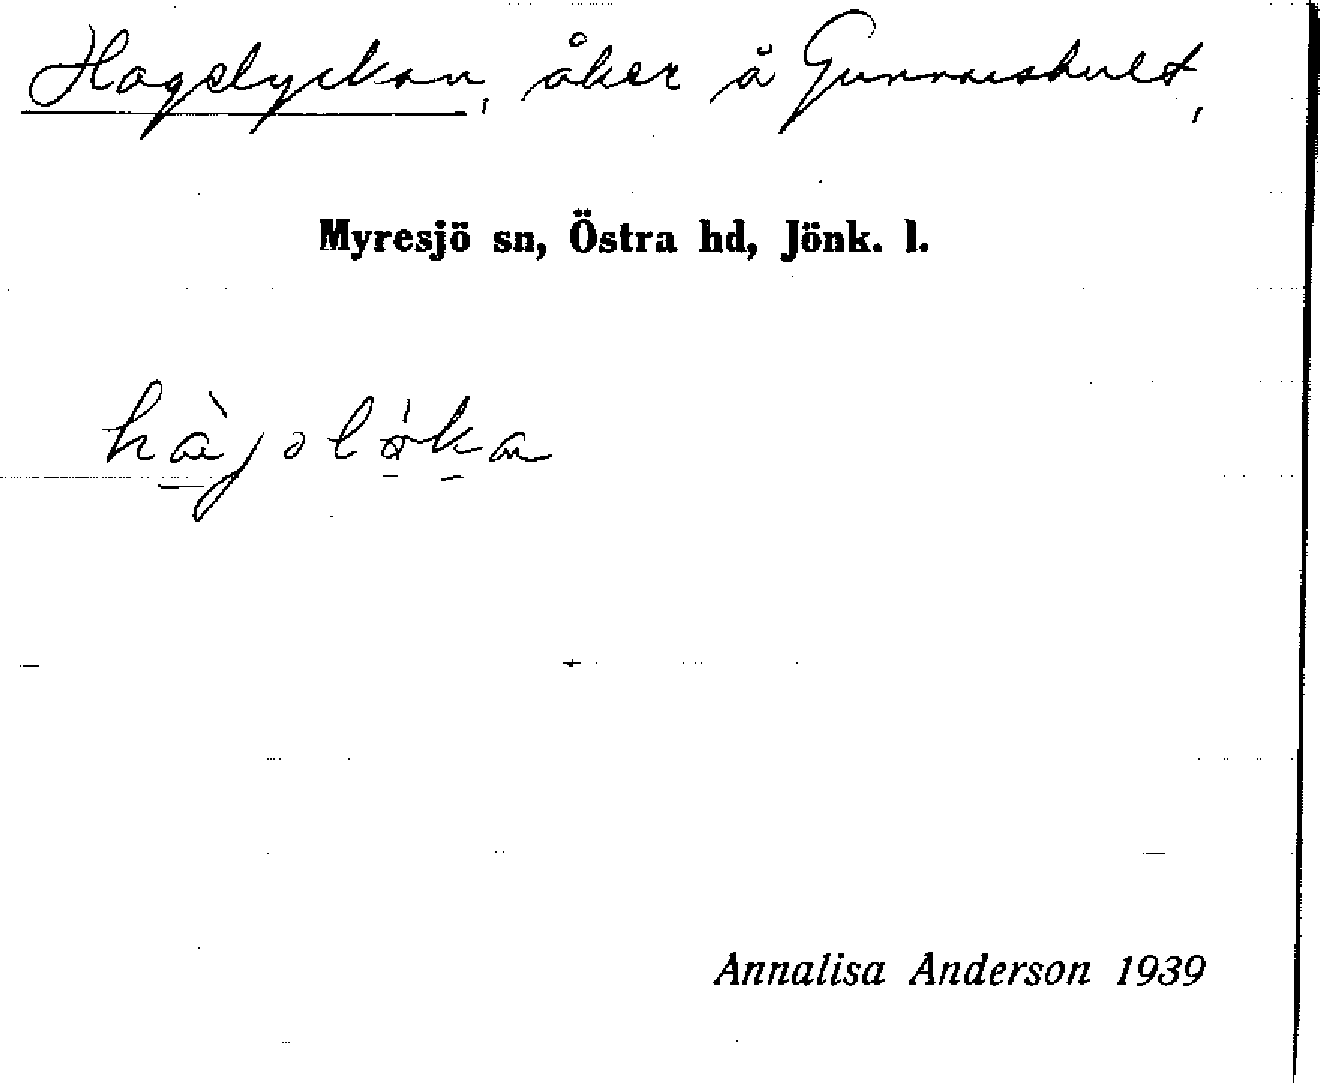 Hagelyckan, åker å Gunnarshult,
Myresjö sn, Östra hd, Jönk. l.
Annalisa Anderson 1939